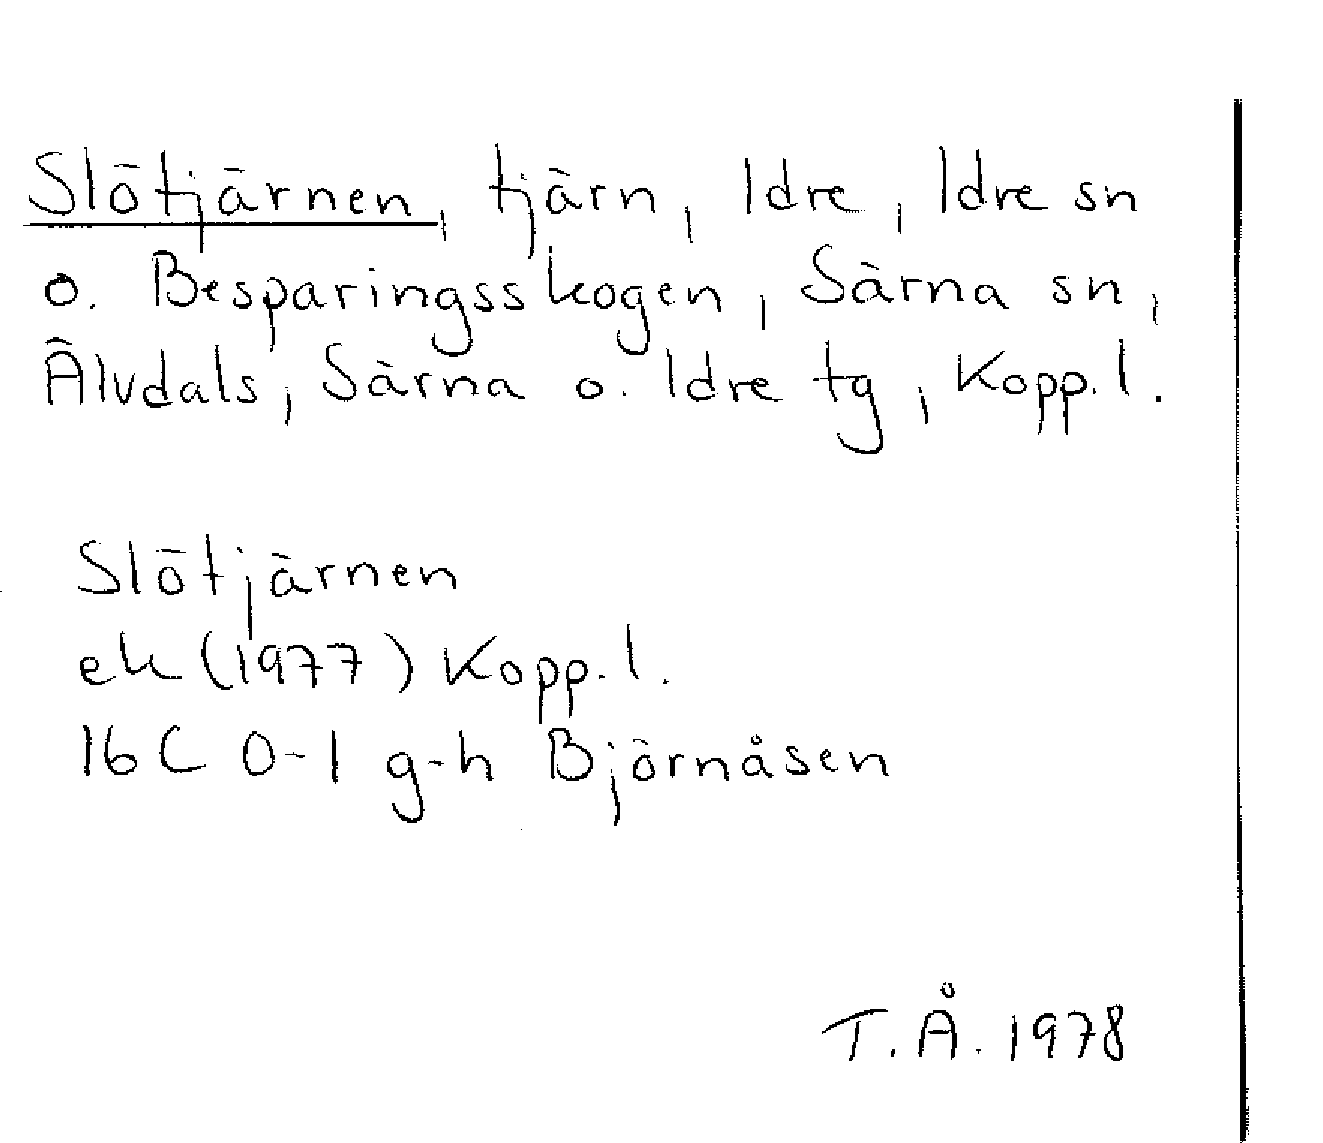 Slötjärnen, tjärn, Idre, Idre sn
o. Besparingsskogen, Särna sn,
Älvdals, Särna o. Idre tg, Kopp. l.
Slötjärnen
ek (1977) Kopp. l.
16C 0-1 g-h Björnåsen
T.Å. 1978